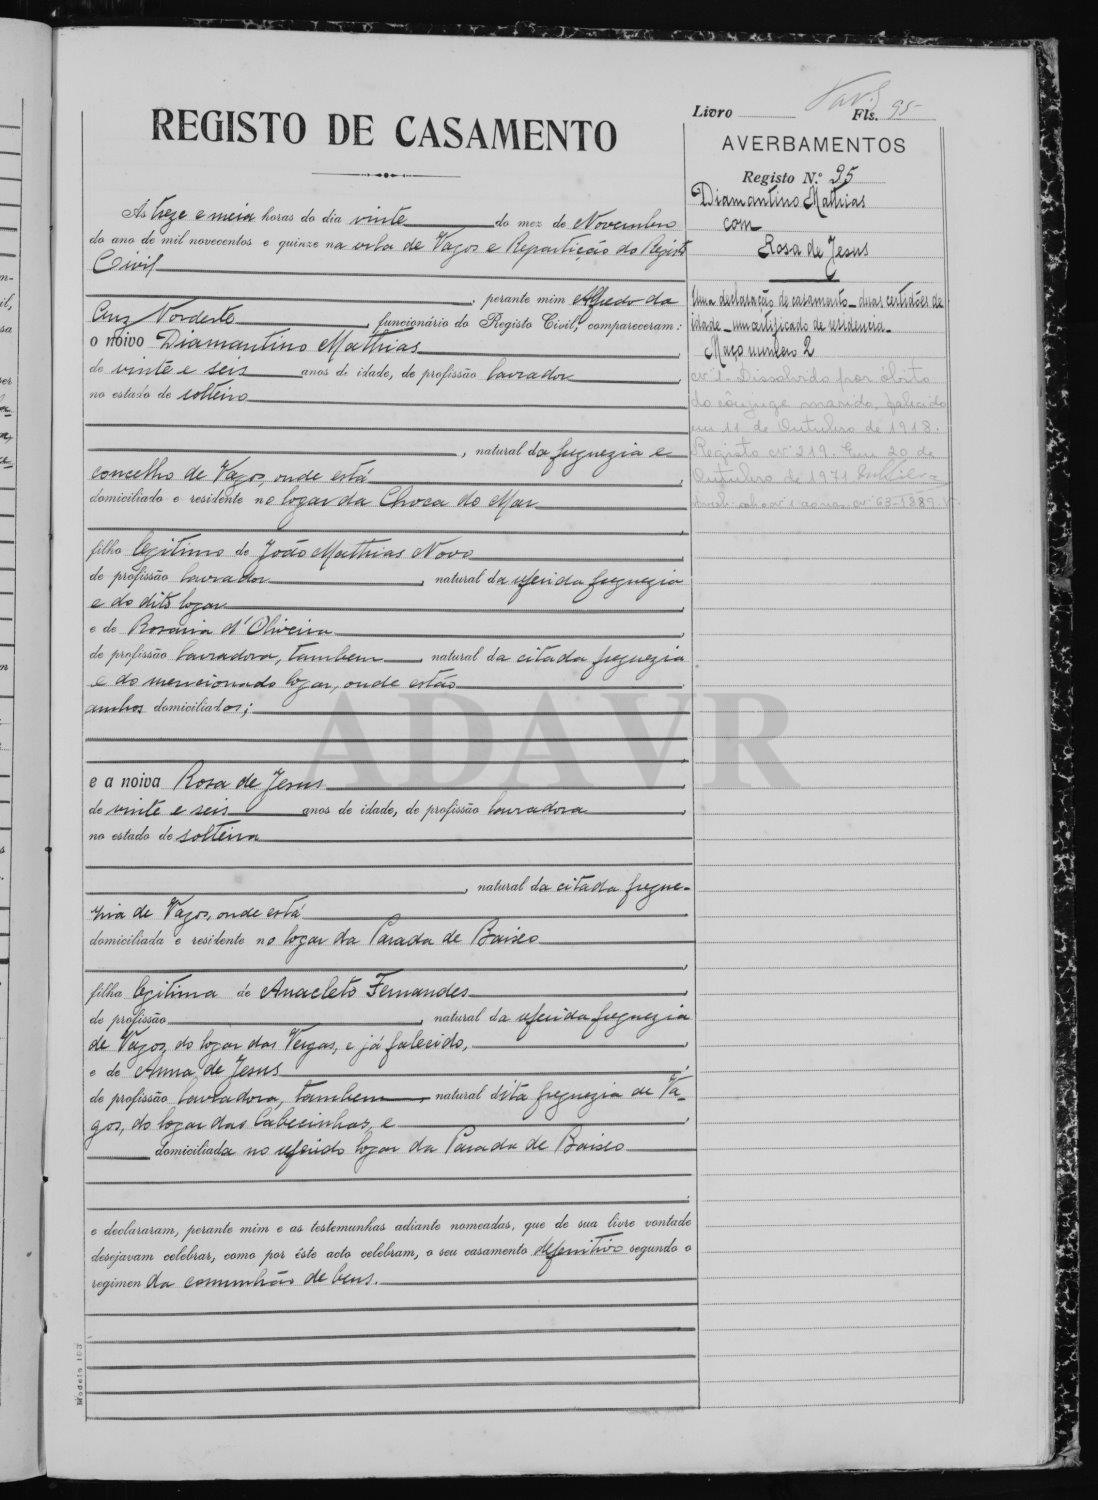 Livro Fls. 95
REGISTO DE CASAMENTO
AVERBAMENTOS
Registo N.º 95
Diamantino Mathias
com
Rosa de Jesus
Uma declaração de casamento - duas certidões de
idade - um certificado de residencia -
Maço numero 2
nº 1. Dissolvido por óbito
do cônjuge marido, falecido
em 11 de Outubro de 1918.
Registo nº 219. Em 20 de
Outubro de 1971
Ás treze e meia horas do dia vinte do mez de Novembro
do ano de mil novecentos e quinze na vila de Vagos e Repartição do Registo
Civil
, perante mim Alfredo da
Cruz Nordeste, funcionário do Registo Civil, compareceram:
o noivo Diamantino Mathias,
de vinte e seis anos de idade, de profissão lavrador
no estado de solteiro
, natural da freguezia e
concelho de Vagos, onde está
domiciliado e residente no logar da Choca do Mar
,
filho legitimo de João Mathias Novo,
de profissão lavrador, natural da referida freguezia
e do dito logar,
e de Rosaria d'Oliveira,
de profissão lavradora, tambem natural da citada freguezia
e do mencionado logar, onde estão,
ambos domiciliados;
,
e a noiva Rosa de Jesus,
de vinte e seis anos de idade, de profissão lavradora
no estado de solteira
, natural da citada fregue-
zia de Vagos, onde está
domiciliada e residente no logar da Parada de Baixo
,
filha legitima de Anacleto Fernandes,
de profissão, natural da referida freguezia
de Vagos, do logar das Vergas, e já falecido,
e de Anna de Jesus,
de profissão lavradora, tambem, natural dita freguezia de Va-
gos, do logar das Cabecinhas, e,
domiciliada no referido logar da Parada de Baixo
,
e declararam, perante mim e as testemunhas adiante nomeadas, que de sua livre vontade
desejavam celebrar, como por êste acto celebram, o seu casamento definitivo segundo o
regimen da comunhão de bens.
Modelo 103
ADAVR